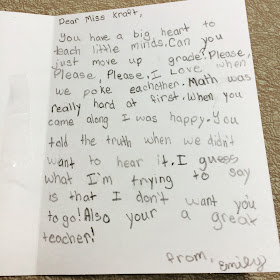 Dear Miss Kraft,
You have a big heart to
teach little minds. Can you
just move up grade! Please,
Please, Please, I Love when
we poke eachother. Math was
really hard at first. When you
came along I was happy. You
told the truth when we didn't
want to hear it. I guess
what I'm trying to say
is that I don't want you
to go! Also your a great
teacher!
From,
Emily